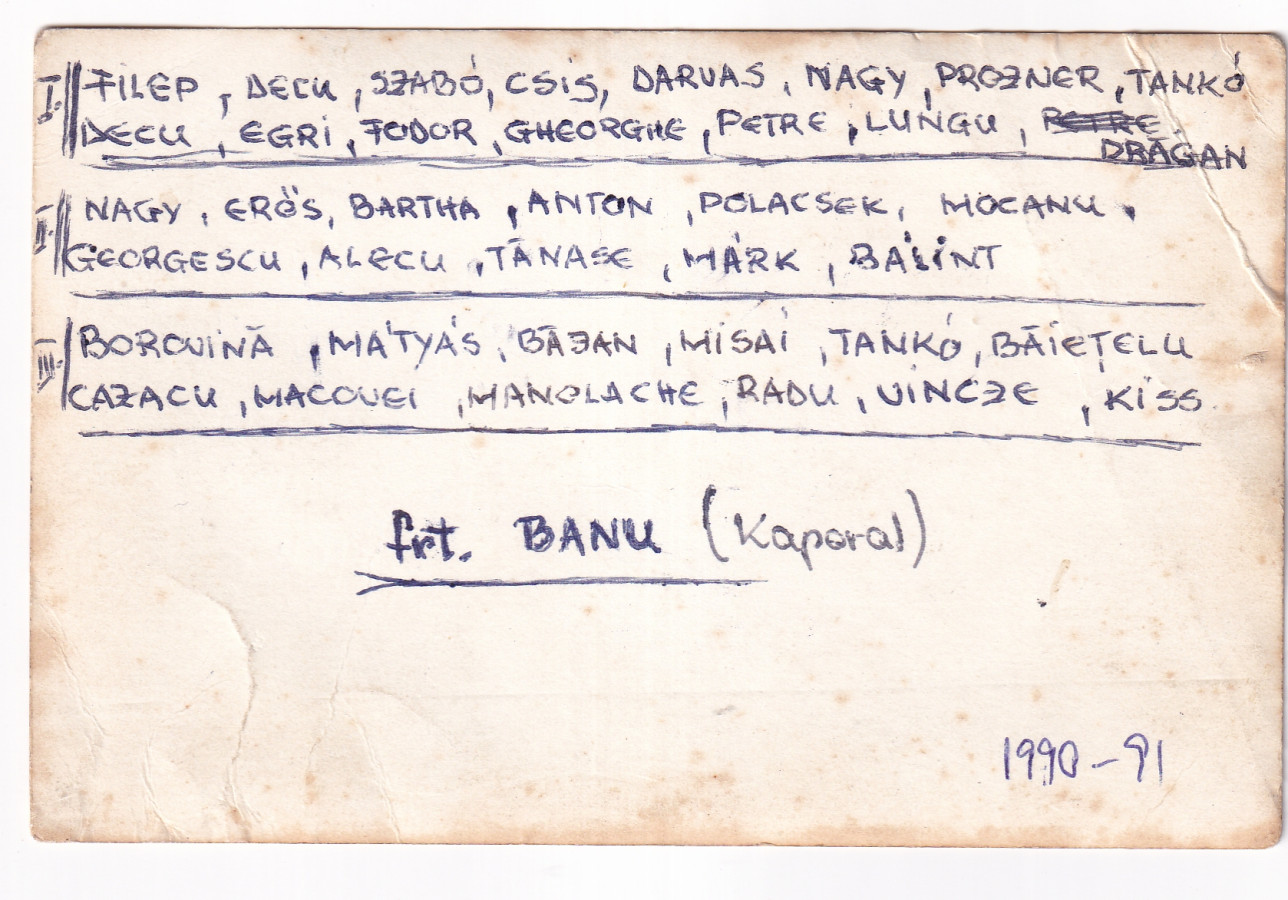 I. FILEP, DECU, SZABÓ, CSIS, DARVAS, NAGY, PROZNER, TANKÓ
DECU, EGRI, FODOR, GHEORGHE, PETRE, LUNGU, PETRE,
DRĂGAN
II. NAGY, ERŐS, BARTHA, ANTON, POLACSEK, MOCANU,
GEORGESCU, ALECU, TĂNASE, MÁRK, BÁLINT
III. BOROVINĂ, MÁTYÁS, BĂZAN, MISAI, TANKÓ, BĂIEȚELU
CAZACU, MACOVEI, MANOLACHE, RADU, VINCZE, KISS
frt. BANU (Kaporal)
1990-91